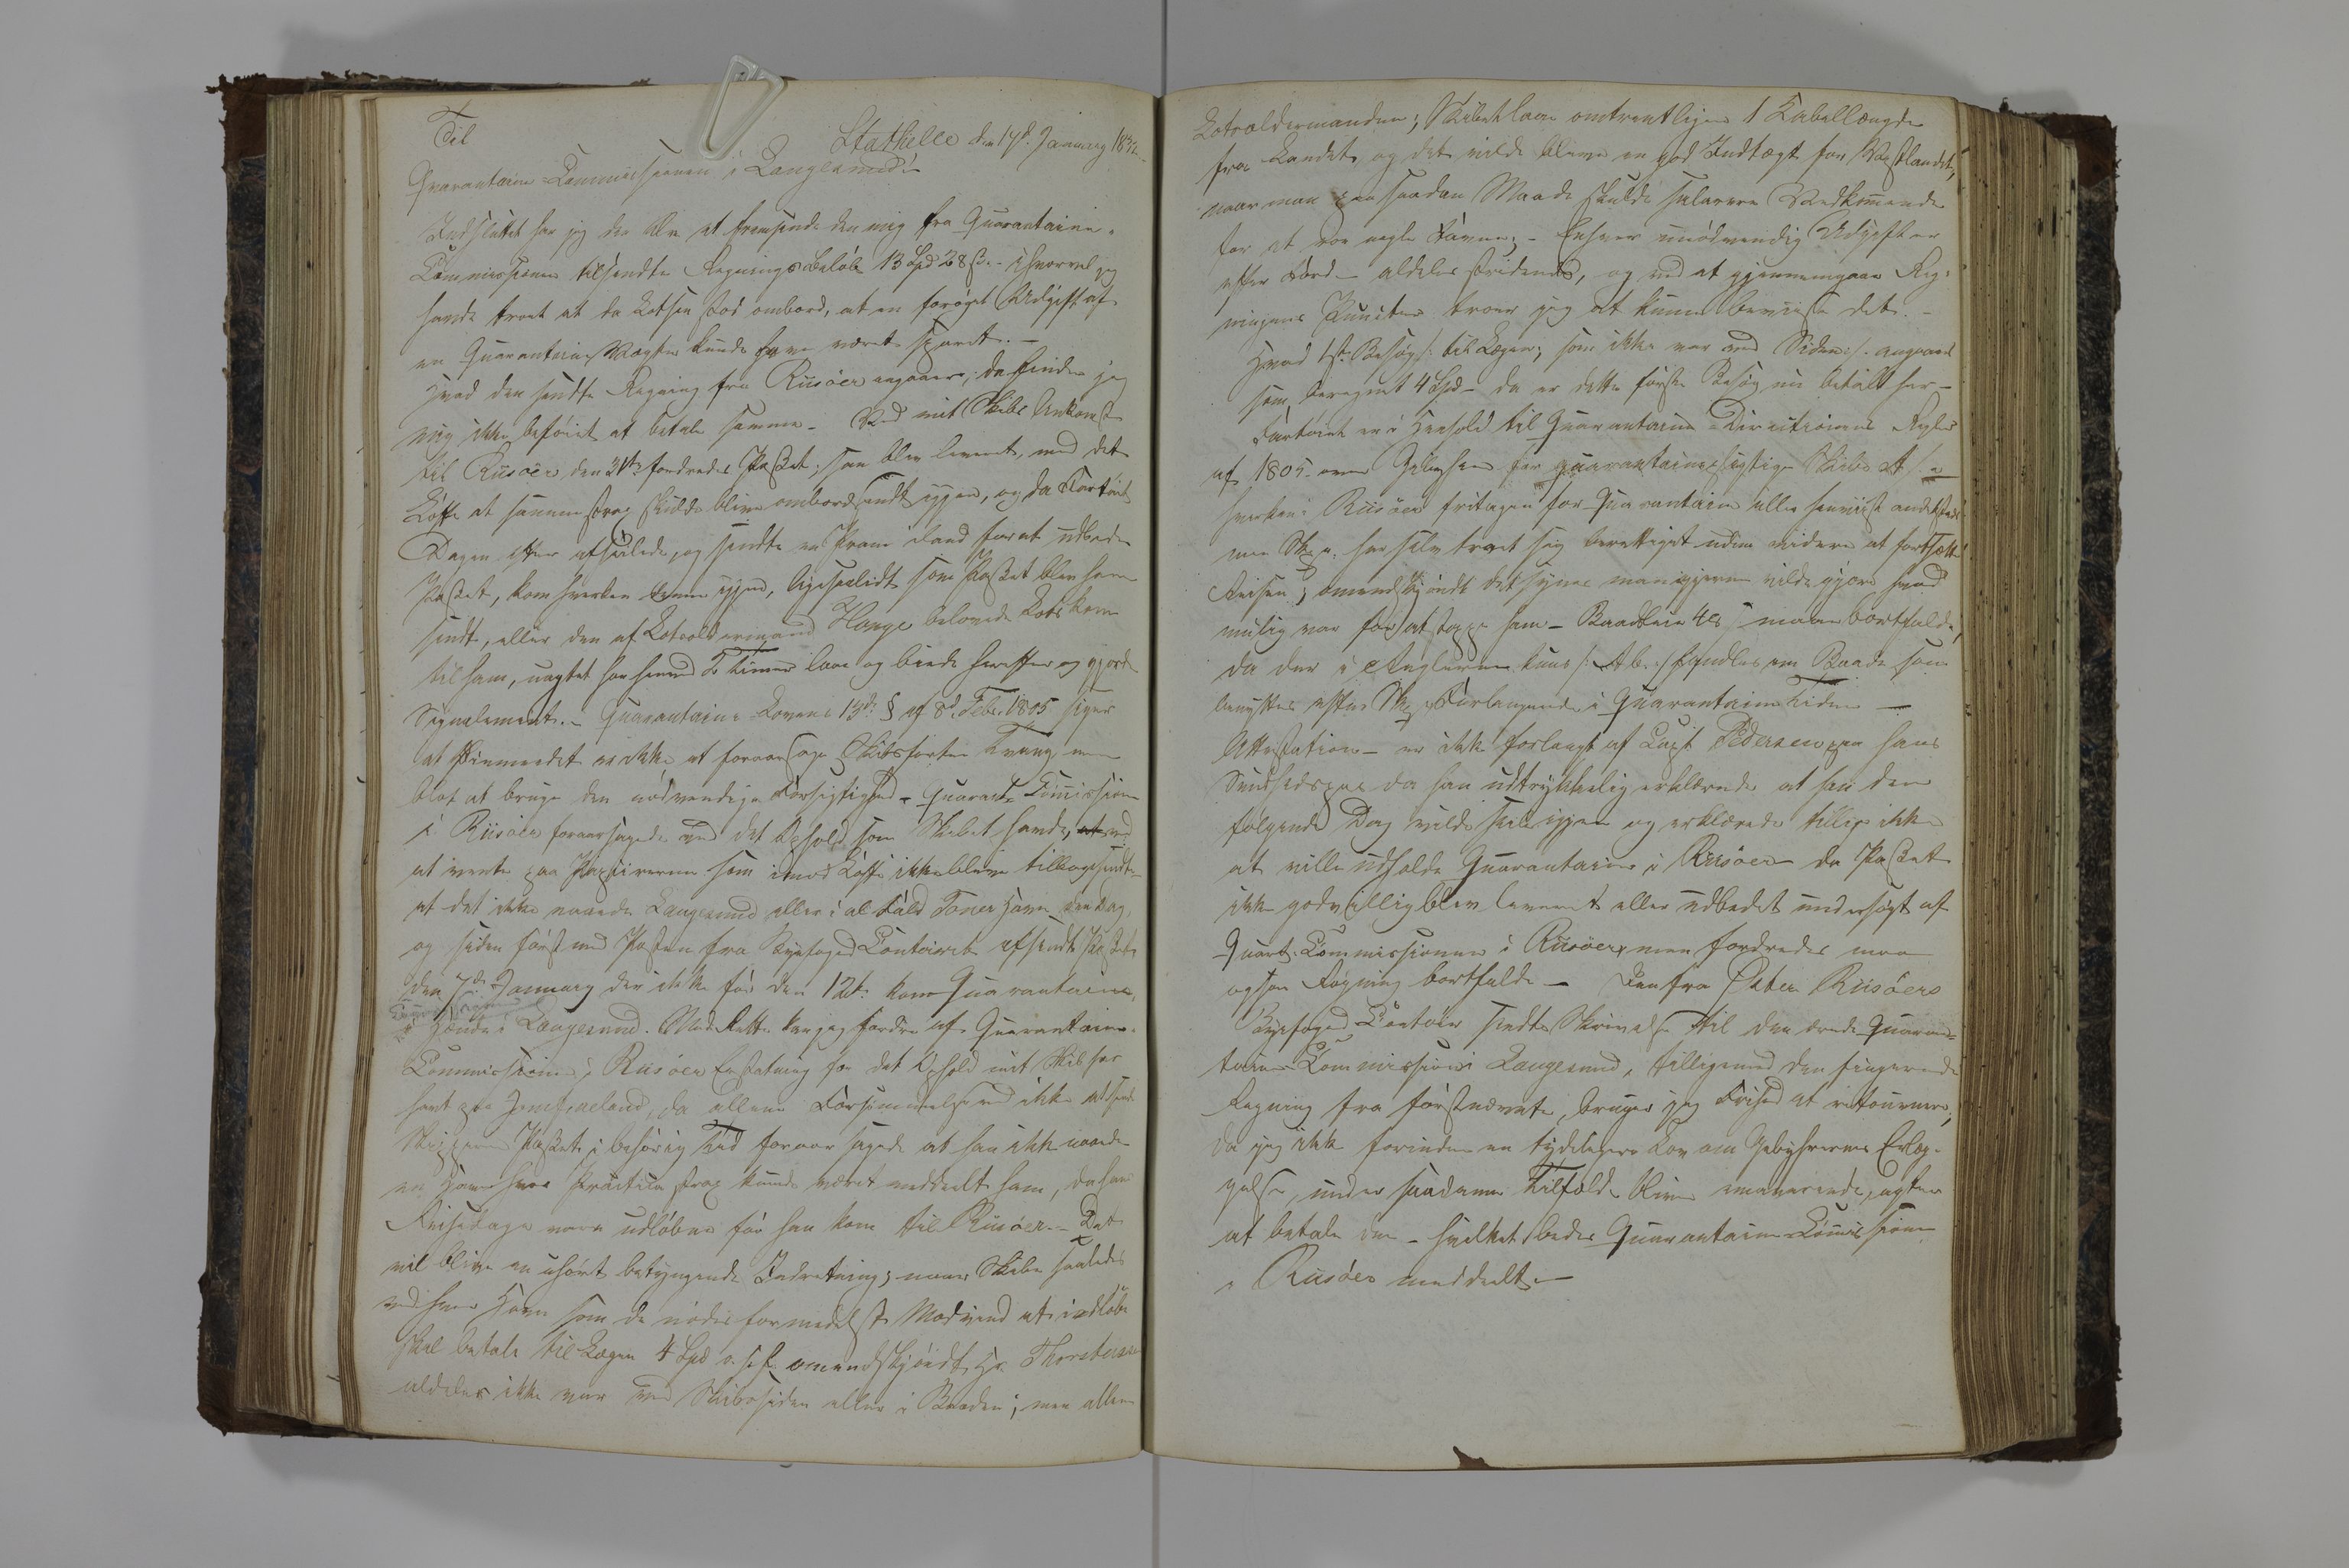 Til
Stathelle den 17d. January 1832
Qvarantaine-Commissionen i Langesund!
Indsluttet har jeg den Ære at fremsende den mig fra Quarantaine-
Commissionen tilsendte Regnings Beløb 13 Spd 28 s. ihvorvel jeg
havde troet at da Lothsen stod ombord, at en forøget Udgift af
en Quarantaine Vægter kunde have været sparet.
Hvad den sendte Regning fra Riisöer angaaer, da finder jeg
mig ikke beføiet at betale samme. Ved mit Skibs Ankomst
til Riisöer den 31te fordredes Passet, som blev leveret, med det
Løfte at samme strax skulde blive ombordsendt igjen, og da Fartøiet
Dagen efter afseilede, og sendte en Pram iland for at udbede
Passet, kom hverken denne igjen, ligesaalidt som Passet blev ham
sendt, eller den af Lotsoldermand Hange belovede Lods kom
til ham, uagtet han henved 2 Timer laae og biede herefter og gjorde
Signalement. Quarantaine-Lovens 13de § af 8d. Febr. 1805 siger
at Øiemeedet er ikke at foraarsage Skibsfarten Tvang men
blot at bruge den nødvendige Forsigtighed - Quarant. Commission
i Riisöer foraarsagede ved det Ophold som Skibet havde, ved
at vente paa Papirerne som imod Løfte ikke bleve tilbagesendt
at det ikke naaede Langesund eller i al Fald Havn den Dag,
og siden først med Posten fra Byefoged Contoiret afsendt Passet
den 7de January der ikke før den 12te kom Quarantaine
Hænde i Langesund. Med Rette kan jeg fordre af Quarantaine-
Commissionen i Riisöer Erstatning for det Ophold mit Skib har
havt paa Jomfrueland, da allene Forsømmelse ved ikke at sende
Skipperen Passet i behörig Tid foraarsagede at han ikke naaede
en Havn hvor Practica strax kunde været meddeelt ham, da hans
Reisedage vare udløbne før han kom til Riisöer. Det
vil blive en uhørt betyngende Indretning, naar Skibe saaledes
ved hver Havn som de nødes formedelst Modvind at indløbe
skal betale til Lægen 4 Spd o.s.f. omendskjøndt Hr. Thorstensen
aldeles ikke var ved Skibssiden eller i Baaden; men allene
Lotsoldermanden; Skibet laae omtrentligen 1 Kabellængde
fra Landet, og det vilde blive en god Indtægt for
naar man paa saadan Maade skulde salarere Vedkommende
for at roe nogle Favne; - Enhver unødvendig Udgift er
efter Lovd aldeles stridende, og ved at gjennemgaae Reg-
ningens Puncter troer jeg at kunne beviise det.
Hvad 1st. Besøg /: til Lægen; som ikke var ved Siden :/ angaaer
som beregnet 4 Spd - da er dette første Besøg nu betalt her -
Fartøiet er i Henhold til Quarantaine-Directionens Regler
af 1805 over Gebyhrer for quarantainepligtige Skibe
hverken i Riisöer fritagen for Quarantaine eller henviist andetsteds
men har selv troet sig berettiget uden videre at fortsætte
Reisen; omendskjøndt det synes man gjerne vilde gjøre hvad
mulig var for at stoppe ham - Baadleie maae bortfalde,
da der i Reglerne kuns handles om Baade som
benyttes efter Forlangende i Quarantaine Tiden -
Attestation - er ikke forlangt af Capt. Pedersen paa hans
Sundhedspas da han udtrykkelig erklærede at han den
følgende Dag vilde seile igjen og erklærede tillige ikke
at ville udholde Quarantaine i Riisöer da Passet
ikke godvillig blev leveret eller udbedet undersøgt af
Quart. Commissionen i Riisöer, men fordredes maa
ogsaa bortfalde - Den fra Øster Riisöers
Byefoged Contoir sendte Skrivelse til den ærede Quaran-
taine Commission i Langesund, tilligemed den fingerede
Regning fra førstnævnte, bruger jeg Frihed at retournere,
da jeg ikke forinden en tydeligere Lov om Gebyhrernes Erlæg-
gelse, under saadanne Tilfælde bliver emanerende, agter
at betale den - hvilket bedes Quarantaine Commissionen
i Riisöer meddeelt. -